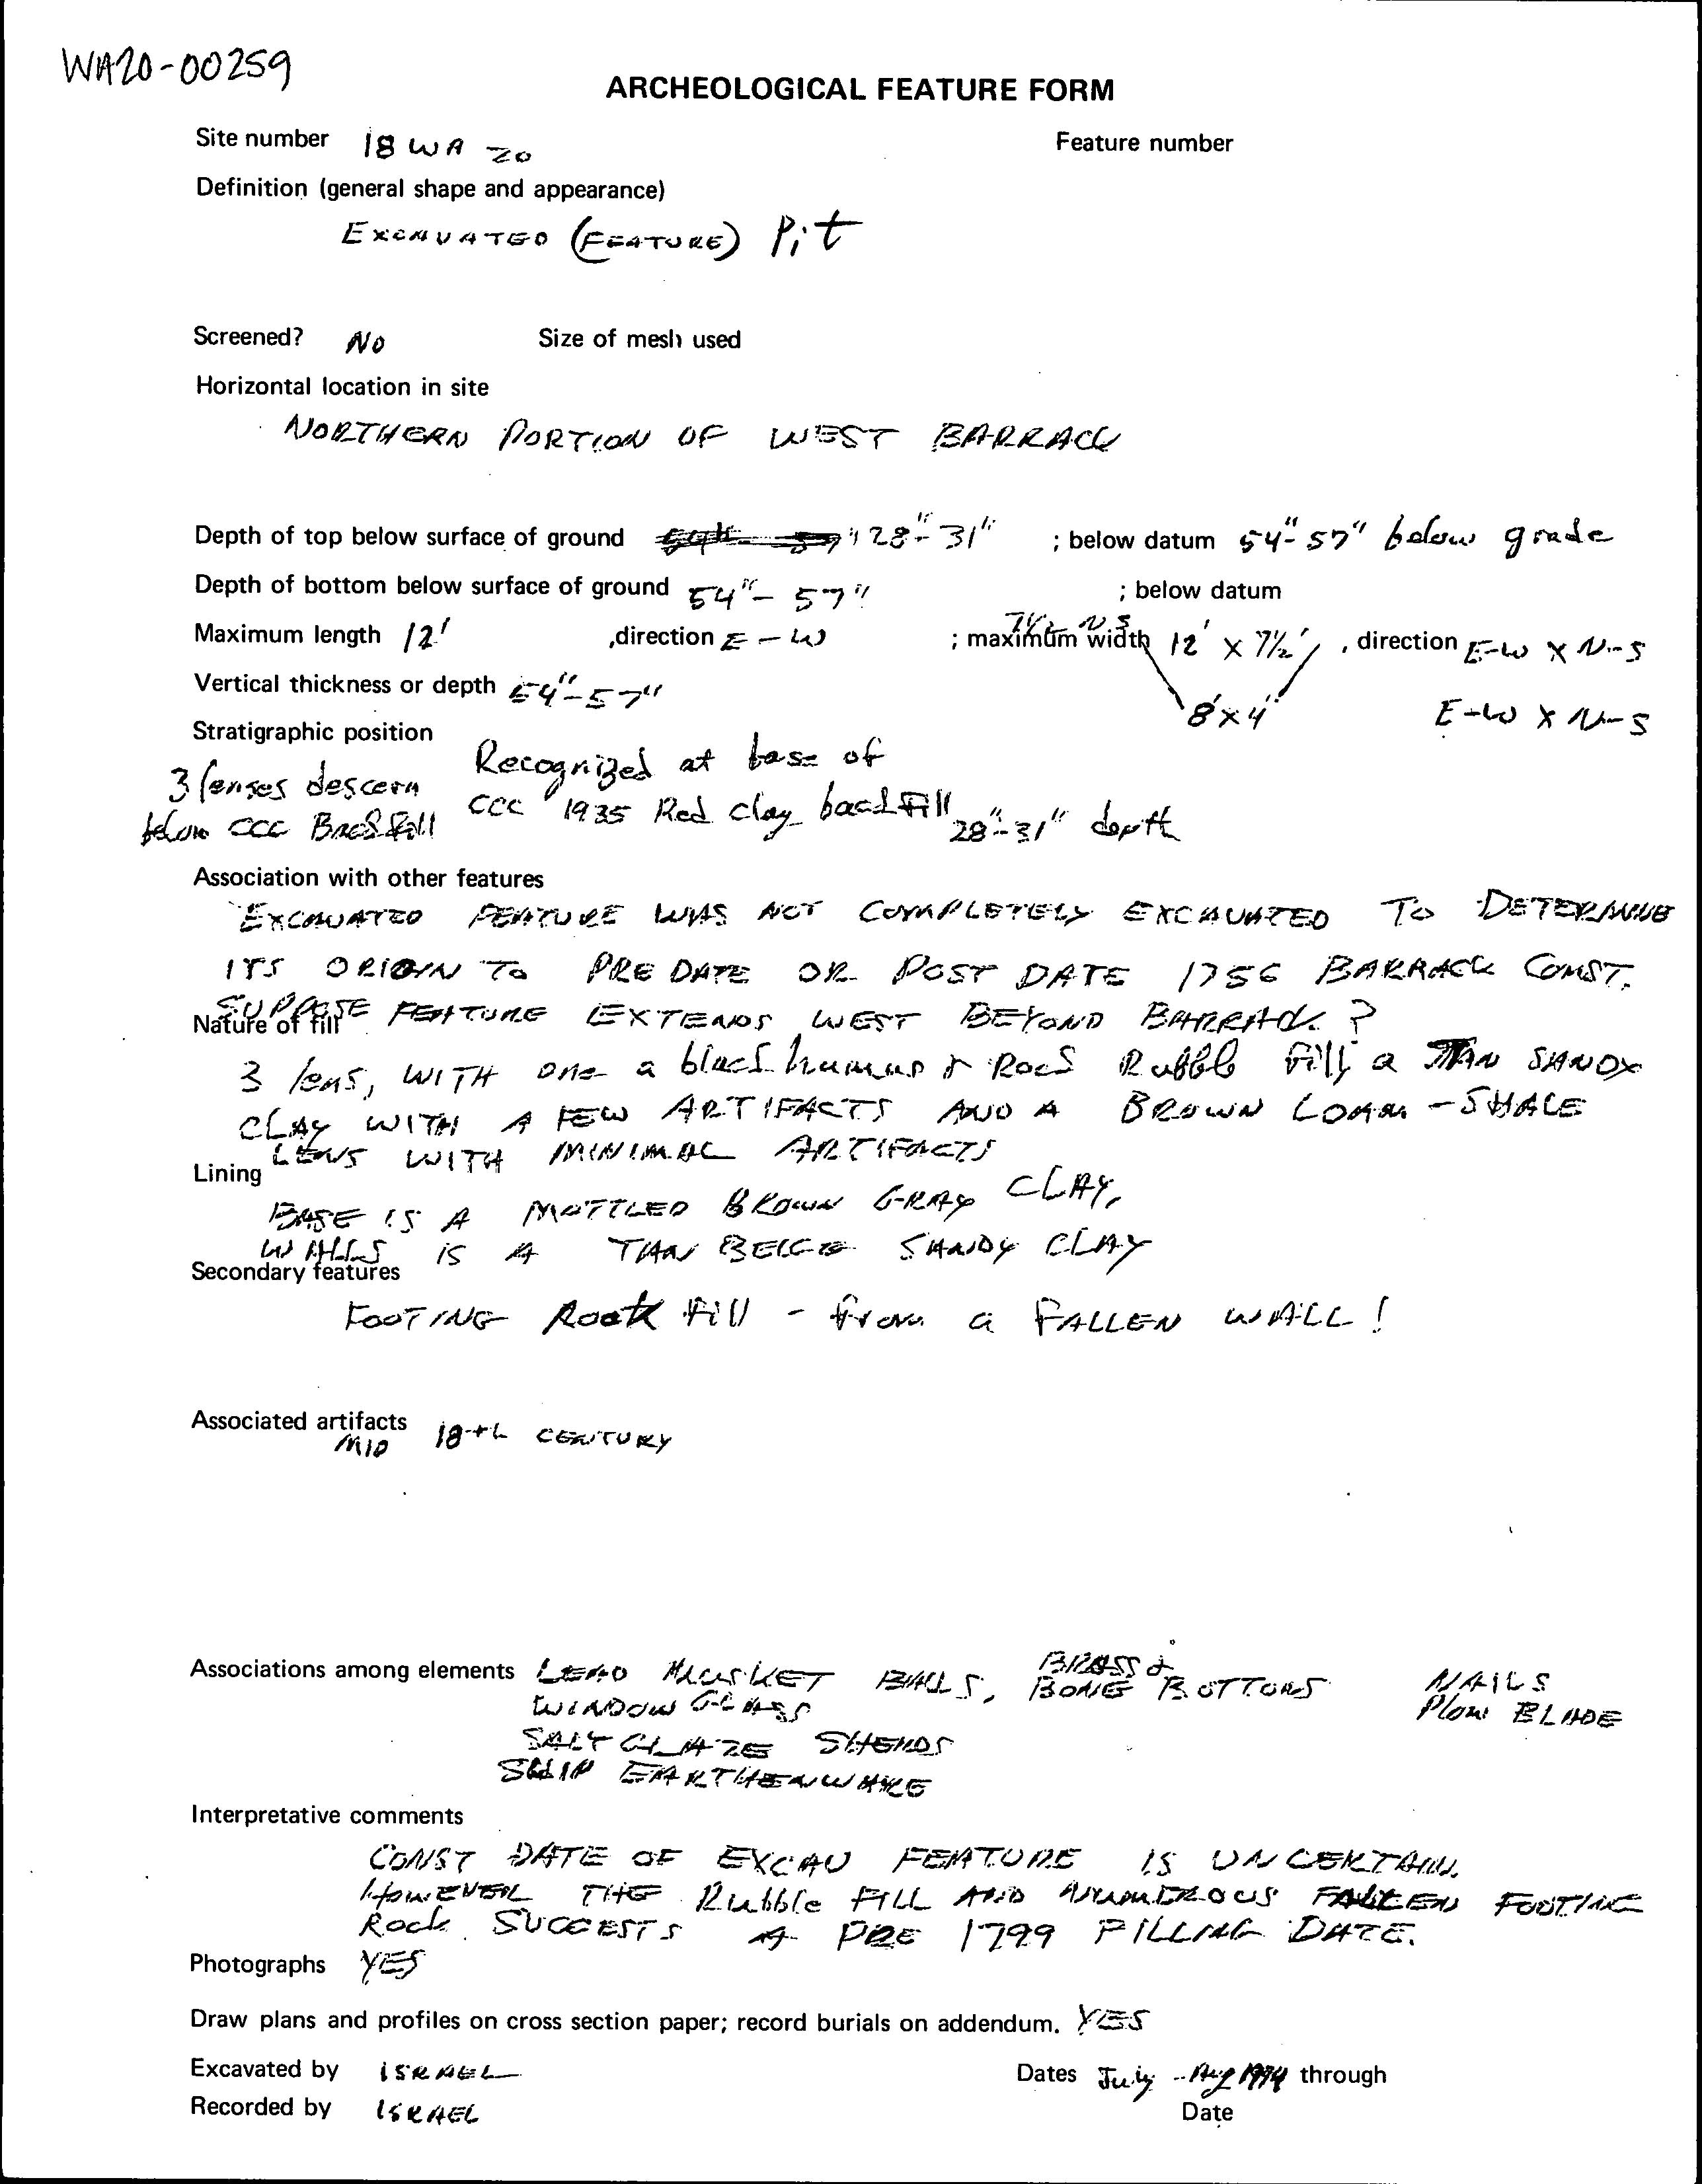 WA20-00259
ARCHEOLOGICAL FEATURE FORM
Site number 18 WA 20 Feature number
Definition (general shape and appearance)
EXCAVATED (FEATURE) Pit
Screened? NO Size of mesh used
Horizontal location in site
NORTHERN PORTION OF WEST BARRACK
Depth of top below surface of ground 28"- 31" ; below datum 54"- 57" below grade
Depth of bottom below surface of ground 54"- 57" ; below datum
Maximum length 12' , direction E - W ; maximum width 12' x 7½' , direction E-W X N-S
Vertical thickness or depth 54"- 57" 8'x4' E-W X N-S
Stratigraphic position
Recognized at base of
3 lenses descern CCC 1935 Red clay backfill 28"-31" depth
below CCC Backfill
Association with other features
EXCAVATED FEATURE WAS NOT COMPLETELY EXCAVATED TO DETERMINE
ITS ORIGIN TO PRE DATE OR POST DATE 1756 BARRACK CONST.
SUPPOSE FEATURE EXTENDS WEST BEYOND BARRACK ?
Nature of fill
3 lens, WITH one a black humus & Rock Rubble fill, a TAN SANDY
CLAY WITH A FEW ARTIFACTS AND A BROWN LOAM - SHALE
LENS WITH MINIMAL ARTIFACTS
Lining
BASE IS A MOTTLED BROWN GRAY CLAY,
WALLS IS A TAN BEIGE SANDY CLAY
Secondary features
FOOTING Rock fill - from a FALLEN WALL !
Associated artifacts
MID 18th CENTURY
Associations among elements LEAD MUSKET BALLS, BRASS & BONE BUTTONS NAILS
WINDOW GLASS Plow BLADE
SALT GLAZE SHERDS
SLIP EARTHENWARE
Interpretative comments
CONST DATE OF EXCAV FEATURE IS UNCERTAIN.
HOWEVER THE Rubble FILL AND NUMEROUS FALLEN FOOTING
Rock SUGGESTS A PRE 1799 FILLING DATE.
Photographs YES
Draw plans and profiles on cross section paper; record burials on addendum. YES
Excavated by ISRAEL Dates July - Aug 1974 through
Recorded by ISRAEL Date